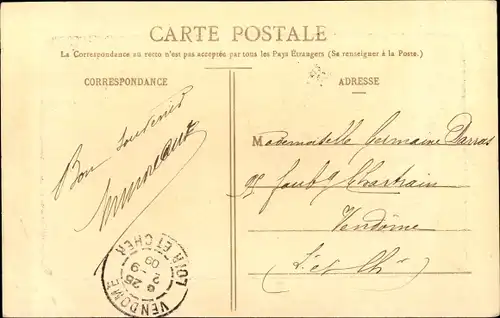 CARTE POSTALE
La Correspondance au recto n'est pas acceptée par tous les Pays Étrangers (Se renseigner à la Poste.)
CORRESPONDANCE
ADRESSE
Bon Souvenir
Mademoiselle Germaine Darras
Faubg Chartrain
Vendôme
L. et Ch
VENDOME
LOIR-ET-CHER
6 25
2 - 9
09